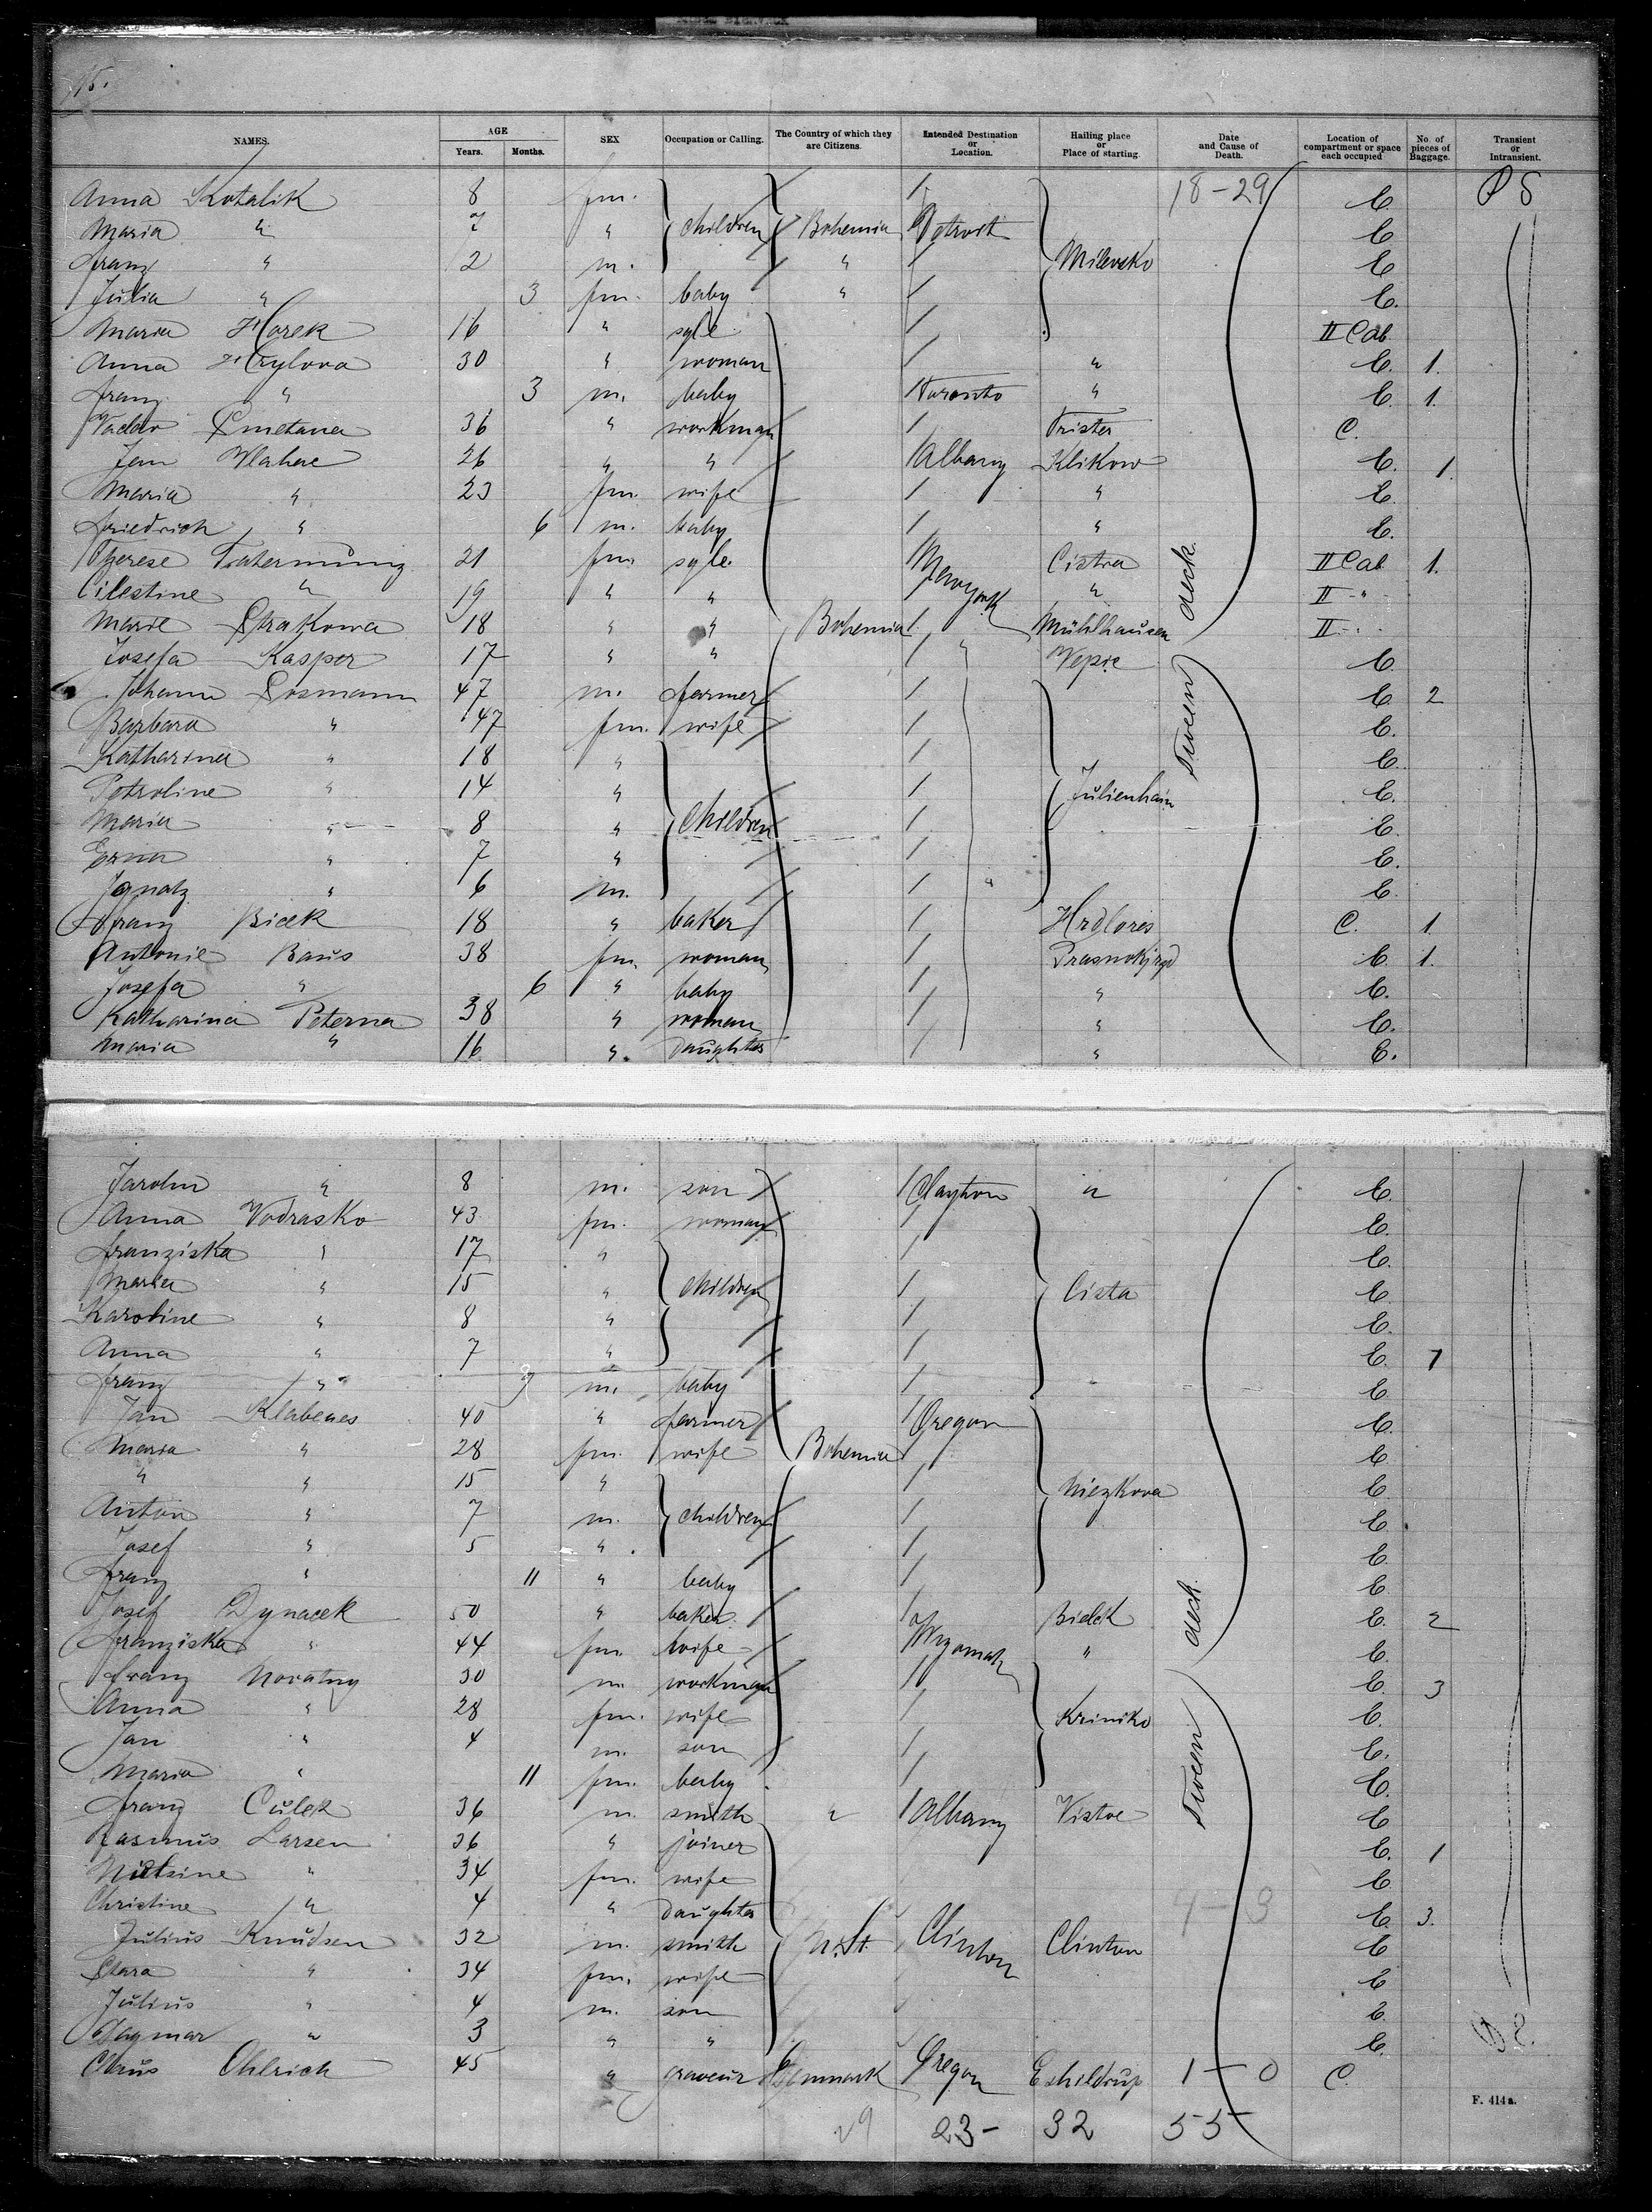 15.
NAMES. AGE Years. Months. SEX Occupation or Calling. The Country of which they are Citizens. Intended Destination or Location. Hailing place or Place of starting. Date and Cause of Death. Location of compartment or space each occupied No. of pieces of Baggage. Transient or Intransient.
Anna Kotalik 8 fm. 18-29 C. P S
Maria " 7 " children Bohemia Detroit C
Franz " 2 m. " Milevsko C
Julia " 3 fm. baby " C.
Maria Horek 16 " sgle II Cab
Anna Krylova 30 " woman " C. 1.
Franz " 3 m. baby Toronto " C. 1.
Smetana 36 " workman Trister C.
Jan Vlahac 26 " " Albany Klikow C. 1.
Maria " 23 fm. wife " C.
Friedrich " 6 m. baby " C.
Therese 21 fm. sgle. Newyork Cistra II Cab 1.
Cilestine " 19 " " " II "
Marie Strakowa 18 " " Bohemia Mühlhausen II
Josefa Kasper 17 " " " C
Johann Sosmann 47 m. farmer C. 2
Barbara " 47 fm. wife C.
Katharina " 18 " C.
Petroline " 14 " Julienhain C.
Maria " 8 " children C.
Erna " 7 " C.
Ignatz " 6 m. " C.
Franz Bicek 18 " baker Hrdlores C. 1
Antonie Baus 38 fm. woman C. 1.
Josefa " 6 " baby " C.
Katharina Peterna 38 " woman " C.
Maria " 16 " daughter " C.
tween deck.
" 8 m. son Clayton " C.
Anna Vodrasko 43 fm. woman C.
Franziska " 17 " C.
Maria " 15 " children Cista C
Karoline " 8 " C.
Anna " 7 " C. 1
Franz " m. baby C.
Jan Klabenes 40 " farmer Oregon C.
Maria " 28 fm. wife Bohemia C.
" " 15 " Niezkova C.
Anton " 7 m. children C.
Josef " 5 " C.
Franz " 11 " baby C
Josef Dynacek 50 " baker C. 2
Franziska " 44 fm. wife " C.
Franz Novatny 30 m. workman C. 3
Anna " 28 fm. wife Kriniko C.
Jan " 4 m. son C.
Maria " 11 fm. baby C.
Franz Culek 36 m. smith " Albany Vistoe C
Rasmus Larsen 36 " joiner C. 1
Nielsine " 34 fm. wife C
Christine " 4 " daughter C. 3.
Julius Knudsen 32 m. smith U. St. Clinton Clinton C
" 34 fm. wife C
Julius " 4 m. son C.
Dagmar " 3 " " C.
Claus Ohlrich 45 " graveur Denmark Oregon Eshildrup 1-0 C.
tween deck.
F. 414a.
29 23- 32 55